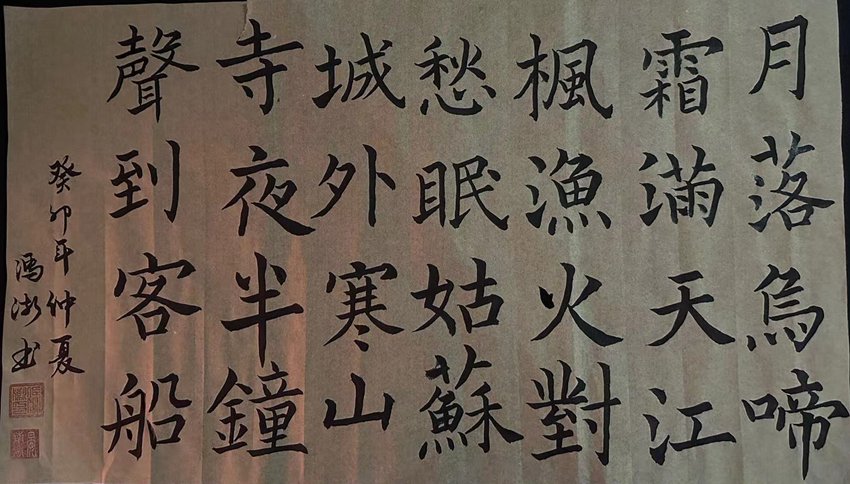 月落烏啼
霜滿天江
楓漁火對
愁眠姑蘇
城外寒山
寺夜半鐘
聲到客船
癸卯年仲夏
馮浙书